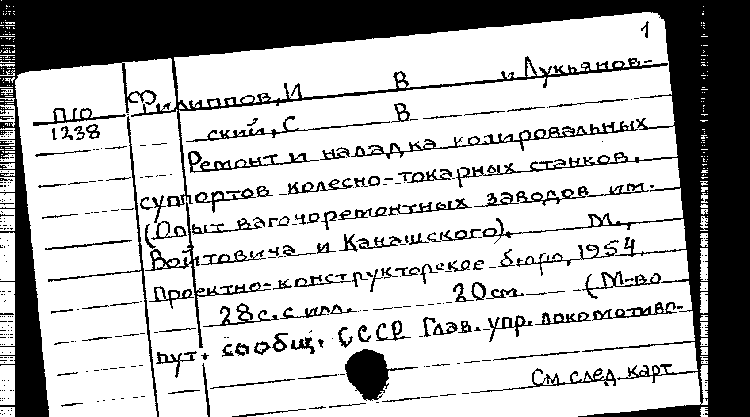 1
Филиппов, И В и Лукьянов-
П/О
1238
ский, С В
Ремонт и наладка копировальных
суппортов колесно-токарных станков.
(Опыт вагоноремонтных заводов им.
Войтовича и Канашского). М.,
Проектно-конструкторское бюро, 1954.
28 с. с илл. 20 см. (М-во
пут. сообщ. СССР Глав. упр. локомотиво-
См. след. карт